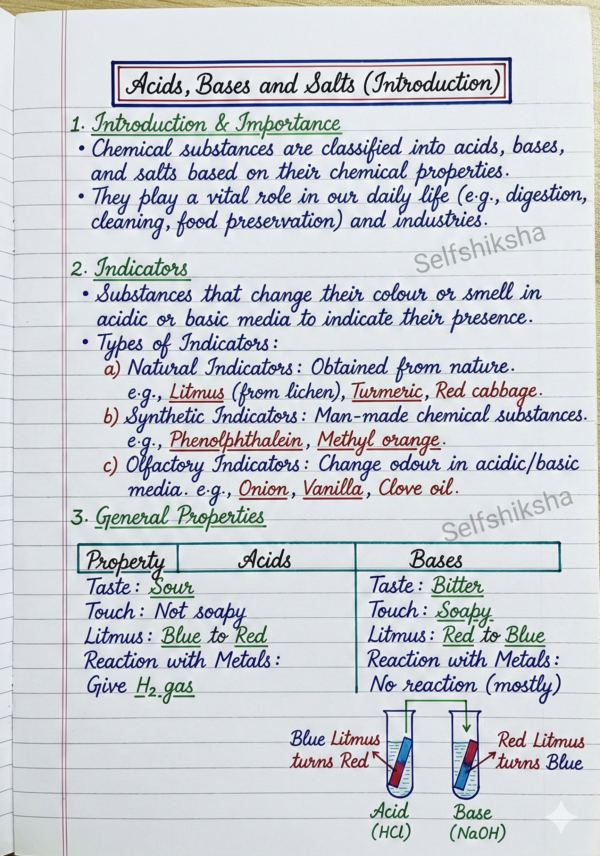 Acids, Bases and Salts (Introduction)
1. Introduction & Importance
• Chemical substances are classified into acids, bases,
and salts based on their chemical properties.
• They play a vital role in our daily life (e.g., digestion,
cleaning, food preservation) and industries.
Selfshiksha
2. Indicators
• Substances that change their colour or smell in
acidic or basic media to indicate their presence.
• Types of Indicators:
a) Natural Indicators: Obtained from nature.
e.g., Litmus (from lichen), Turmeric, Red cabbage.
b) Synthetic Indicators: Man-made chemical substances.
e.g., Phenolphthalein, Methyl orange.
c) Olfactory Indicators: Change odour in acidic/basic
media. e.g., Onion, Vanilla, Clove oil.
Selfshiksha
3. General Properties
Property Acids Bases
Taste: Sour Taste: Bitter
Touch: Not soapy Touch: Soapy
Litmus: Blue to Red Litmus: Red to Blue
Reaction with Metals: Reaction with Metals:
Give H₂ gas No reaction (mostly)
Blue Litmus Red Litmus
turns Red turns Blue
Acid Base
(HCl) (NaOH)